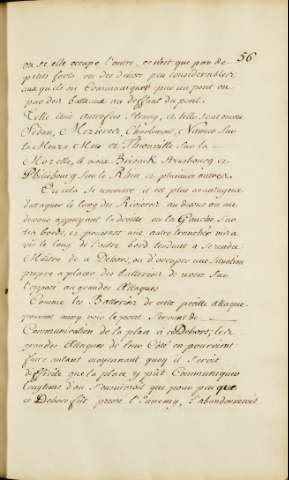 56
ou si elle occupe l'autre, ce n'est que par de
petits forts ou des dehors peu considerables
auxquels on Communique par un pont ou
par des batteaux au deffaut du pont.
Telle etoit autrefois Stenay, et telle sont encore
Sedan, Mezieres, Charlemont, Namur sur
la Meuze Metz et Thionville sur la
Mozelle, le vieux Brisack Strasbourg et
Philisbourg sur le Rhin et plusieurs autres.
Ou cela se rencontre il est plus avantageux
d'attaquer le long des Rivieres au dessus ou au
dessous appuyant la droitte ou la Gauche sur
les bords, et poussant une autre tranchée vis a
vis le long de l'autre bord tendant a se rendre
Maitre de ce Dehors, ou d'occuper une situation
propre a placer des batteries de revers sur
l'opposé aux grandes Attaques
Comme les Batteries de cette petitte attaque
peuvent aussy voir le pont servant de
Communication de la place à ce Dehors; les
grandes Attaques de leur Coté en pouroient
faire autant moyenant quoy il seroit
difficile que la place y pût Communiquer
longtems d'ou s'ensuivroit que pour peu que
ce Dehors fut pressé l'Ennemy, l'abandonneroit